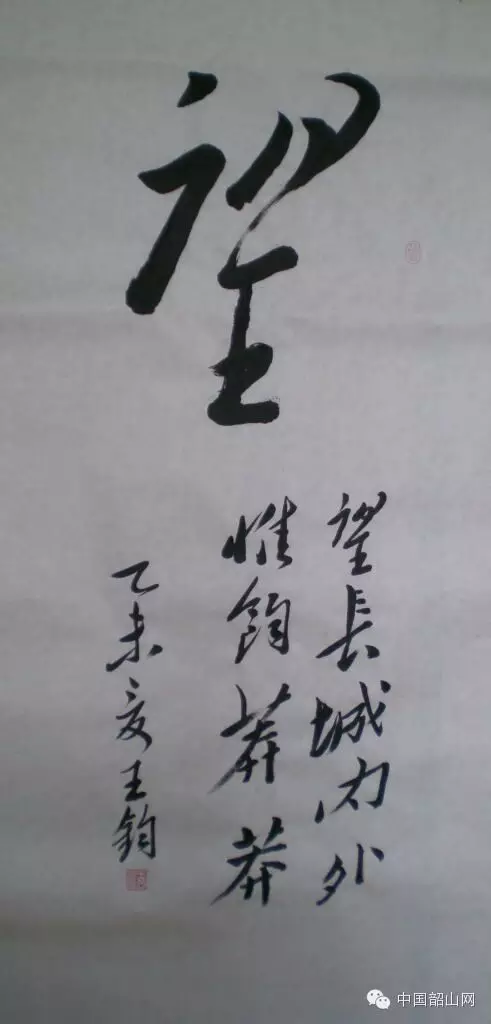 望
望長城内外
惟餘莽莽
乙未夏王鈞
中国韶山网